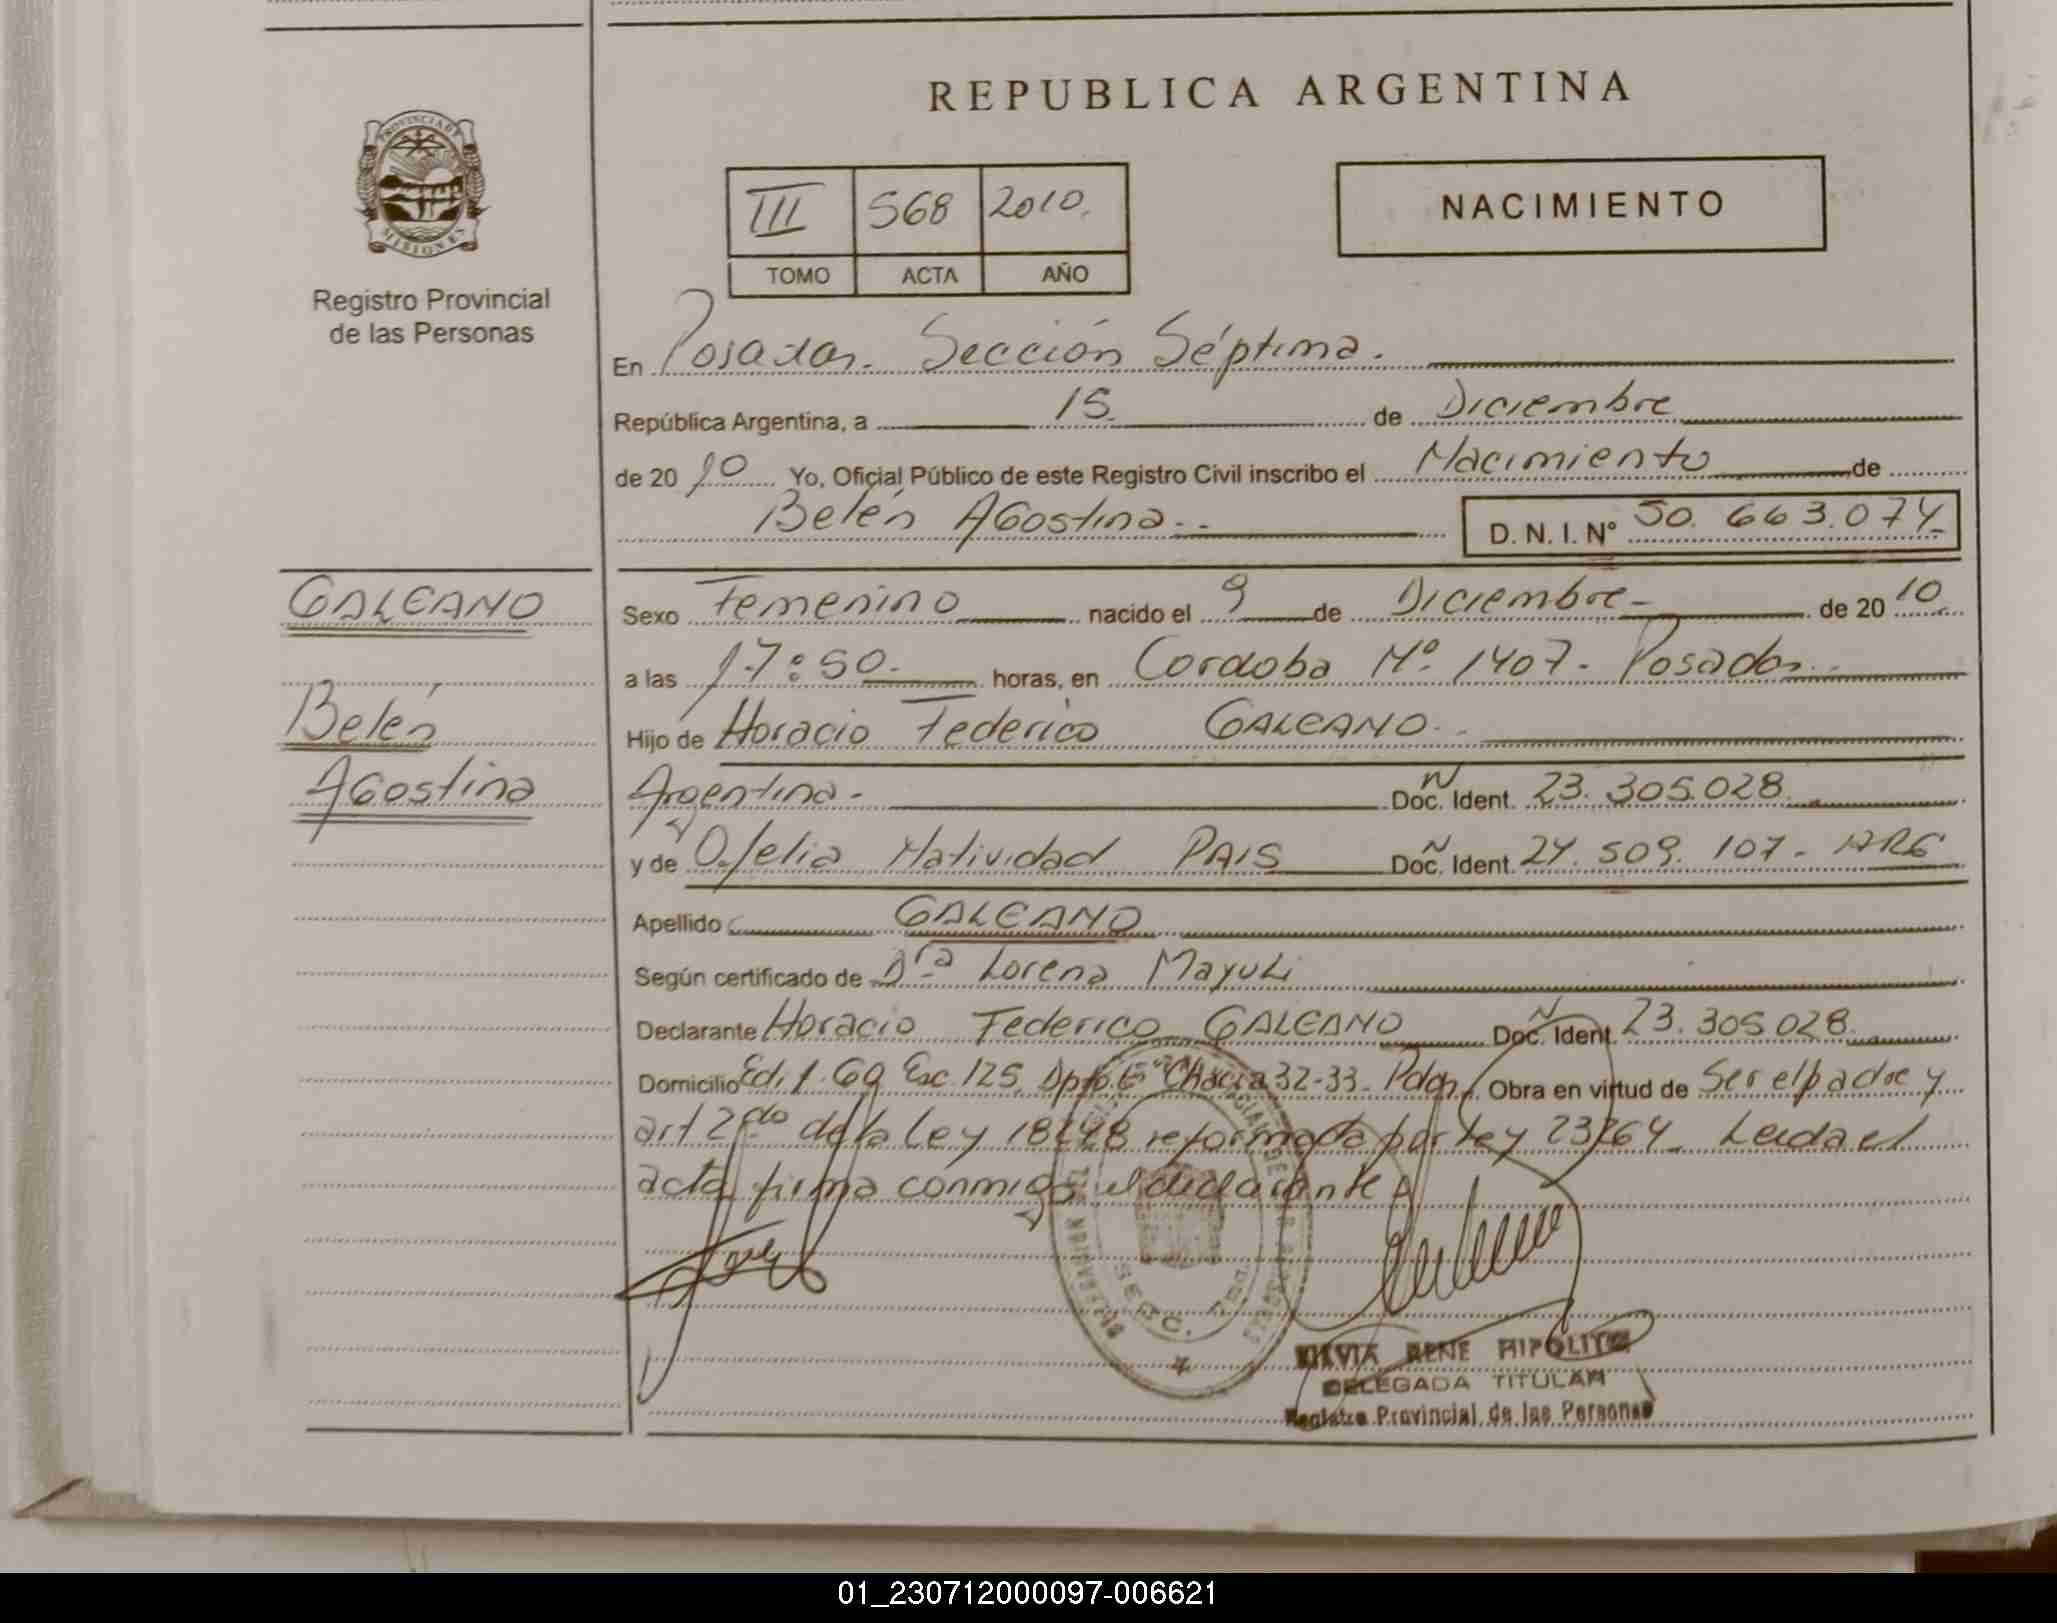 REPUBLICA ARGENTINA
PROVINCIA DE MISIONES
Registro Provincial
de las Personas
III 568 2010.
TOMO ACTA AÑO
NACIMIENTO
En Posadas. Sección Séptima.
República Argentina, a 15 de Diciembre
de 2010 Yo, Oficial Público de este Registro Civil inscribo el Nacimiento de
Belén Agostina.- D.N.I. Nº 50.663.074
GALEANO
Belén
Agostina
Sexo Femenino nacido el 9 de Diciembre de 2010
a las 17:50 horas, en Cordoba Nº 1407- Posadas
Hijo de Horacio Federico GALEANO.
Argentina. Doc. Ident. 23.305.028
y de Ofelia Natividad PAIS Doc. Ident. 24.509.107- ARG
Apellido GALEANO
Según certificado de Dra Lorena
Declarante Horacio Federico GALEANO Doc. Ident. 23.305.028
Domicilio Edif. 69 Esc. 125, Dpto. Chacra 32-33- Pdas, Obra en virtud de Ser el padre y
art 2do de la Ley 18248 reformada por Ley 23264- Leida el
acta firma conmigo el declarante
SECC. 7
RENE HIPOLITO
DELEGADA TITULAR
Registro Provincial de las Personas
01_230712000097-006621